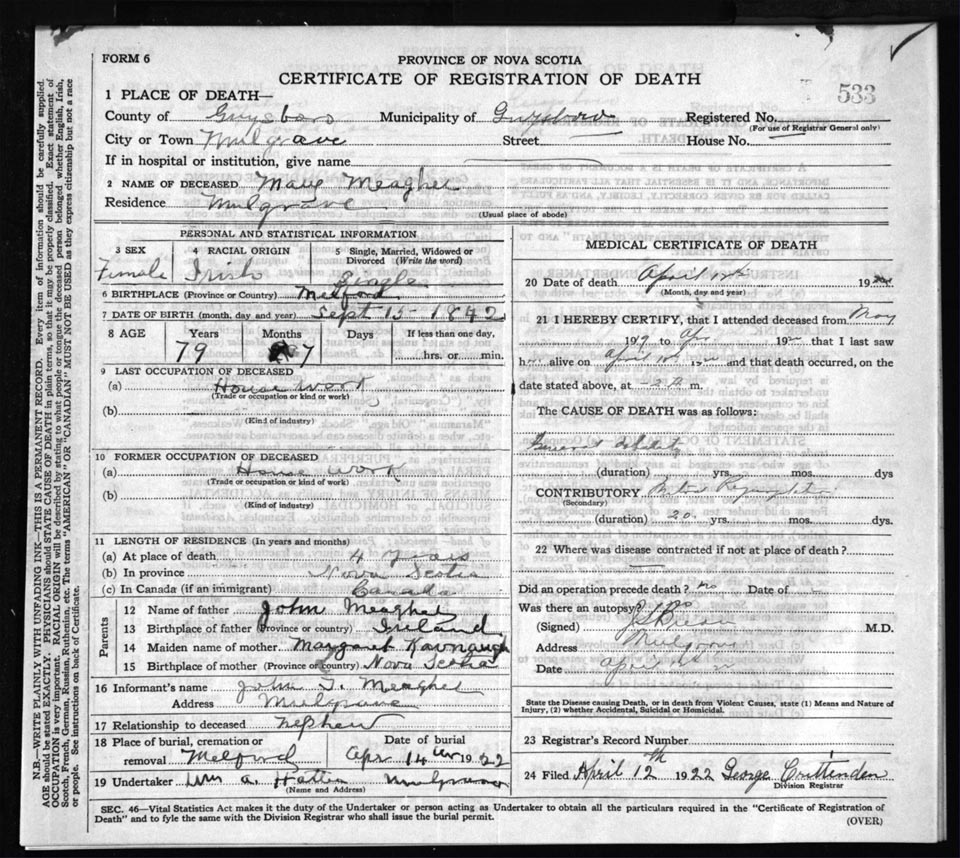 FORM 6
PROVINCE OF NOVA SCOTIA
CERTIFICATE OF REGISTRATION OF DEATH
533
1 PLACE OF DEATH—
County of Guysboro Municipality of Guysboro Registered No.
(For use of Registrar General only)
City or Town Mulgrave Street House No.
If in hospital or institution, give name
2 NAME OF DECEASED Mary Meagher
Residence Mulgrave
(Usual place of abode)
PERSONAL AND STATISTICAL INFORMATION
3 SEX 4 RACIAL ORIGIN 5 Single, Married, Widowed or Divorced (Write the word)
Female Irish Single
6 BIRTHPLACE (Province or Country) Milford
7 DATE OF BIRTH (month, day and year) Sept 15 - 1842
8 AGE Years Months Days If less than one day,
79 7 hrs. or min.
9 LAST OCCUPATION OF DECEASED
(a) House work
(Trade or occupation or kind or work)
(b)
(Kind of industry)
10 FORMER OCCUPATION OF DECEASED
(a) House work
(Trade or occupation or kind or work)
(b)
(Kind of industry)
11 LENGTH OF RESIDENCE (In years and months)
(a) At place of death 4 years
(b) In province Nova Scotia
(c) In Canada (if an immigrant) Canada
Parents
12 Name of father John Meagher
13 Birthplace of father (Province or country) Ireland
14 Maiden name of mother Margaret Kavnaugh
15 Birthplace of mother (Province or country) Nova Scotia
16 Informant's name John T. Meagher
Address Mulgrave
17 Relationship to deceased nephew
18 Place of burial, cremation or removal Date of burial
Melford Apr 14 1922
19 Undertaker Wm A. Hattie Mulgrave
(Name and Address)
MEDICAL CERTIFICATE OF DEATH
20 Date of death April 19
(Month, day and year)
21 I HEREBY CERTIFY, that I attended deceased from May
1919 to Apr 19 that I last saw
h alive on April and that death occurred, on the
date stated above, at m.
The CAUSE OF DEATH was as follows:
General debility
(duration) yrs. mos. dys
CONTRIBUTORY Mitral Regurgitation
(Secondary)
(duration) 20 yrs. mos. dys.
22 Where was disease contracted if not at place of death?
Did an operation precede death? no Date of
Was there an autopsy? no
(Signed) M.D.
Address Mulgrave
Date April
State the Disease causing Death, or in death from Violent Causes, state (1) Means and Nature of Injury, (2) whether Accidental, Suicidal or Homicidal.
23 Registrar's Record Number
24 Filed April 12th 1922 George Crittenden
Division Registrar
SEC. 46—Vital Statistics Act makes it the duty of the Undertaker or person acting as Undertaker to obtain all the particulars required in the "Certificate of Registration of
Death" and to fyle the same with the Division Registrar who shall issue the burial permit.
(OVER)
N.B.—WRITE PLAINLY WITH UNFADING INK—THIS IS A PERMANENT RECORD. Every item of information should be carefully supplied.
AGE should be stated EXACTLY. PHYSICIANS should STATE CAUSE OF DEATH in plain terms, so that it may be properly classified. Exact statement of
OCCUPATION is very important. RACIAL ORIGIN will be described by stating to what people or tongue the deceased person belonged, whether English, Irish,
Scotch, French, German, Russian, Ruthenian, etc. The terms "AMERICAN" OR "CANADIAN" MUST NOT BE USED as they express citizenship but not a race
or people. See instructions on back of Certificate.